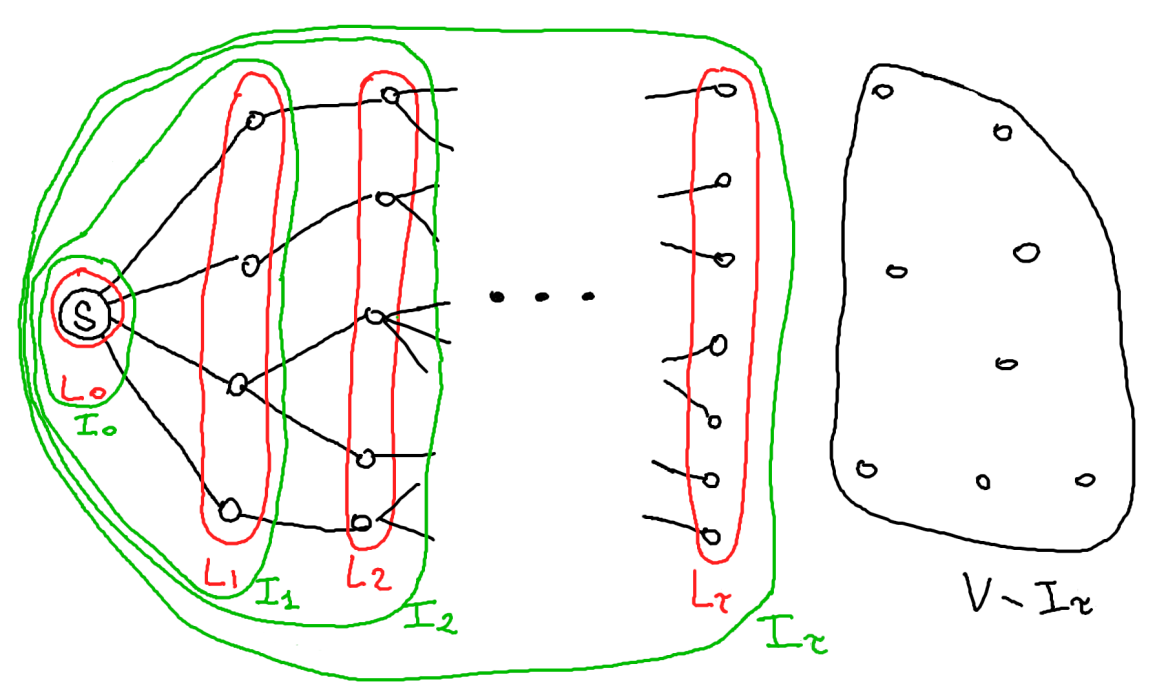 S
L0
I0
L1
I1
L2
I2
...
Lτ
Iτ
V \ Iτ